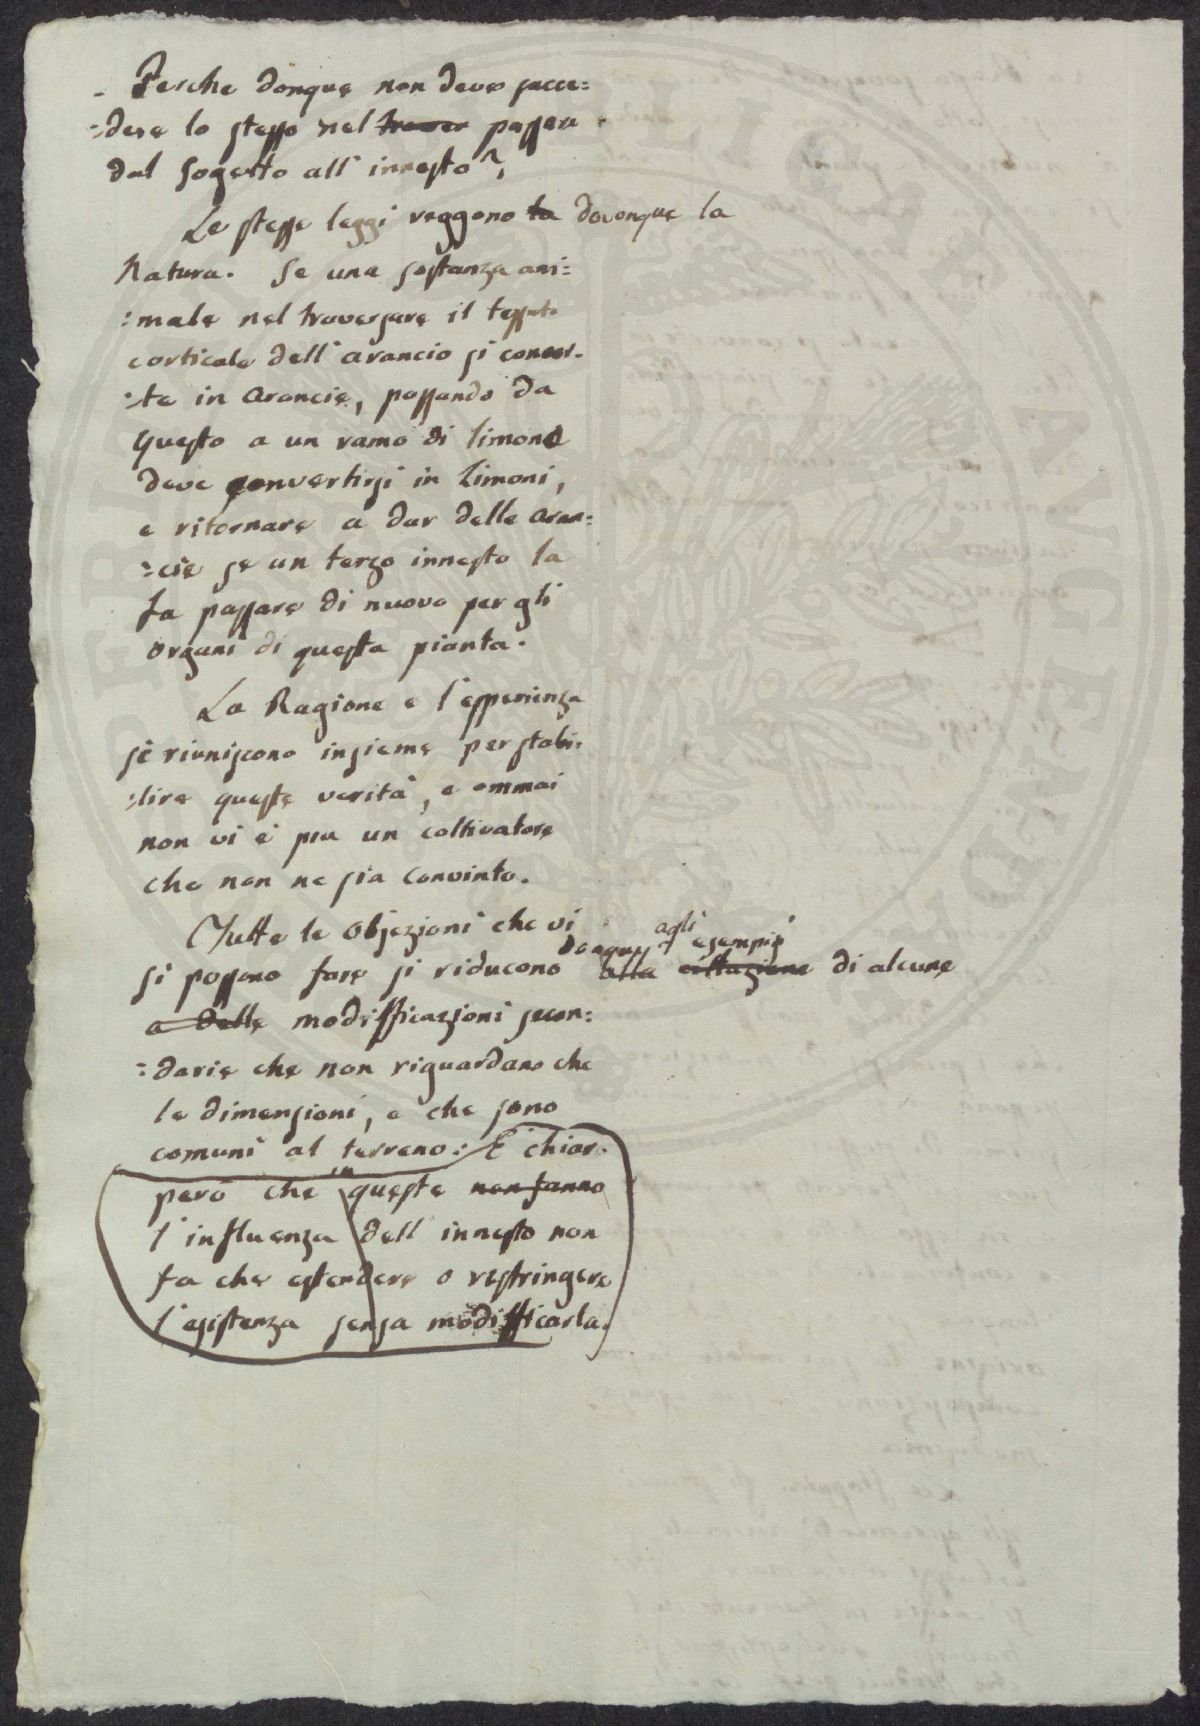 - Perche donque non deve succe=
=dere lo stesso nel traver passare
dal sogetto all' innesto?
Le stesse leggi reggono la dovonque la
Natura. Se una sostanza ani=
=male nel traversare il tessuto
corticale dell' arancio si conver=
=te in Arancie, passando da
questo a un ramo di limone
deve convertirsi in Limoni,
e ritornare a dar delle Aran=
=cie se un terzo innesto la
fa passare di nuovo per gli
organi di questa pianta.
La Ragione e l'esperienza
si riuniscono insieme per stabi=
=lire queste verità, e ommai
non vi è piu un coltivatore
che non ne sia convinto.
Tutte le Objezioni che vi
donque agli esempii
si possono fare si riducono alla cittazione di alcune
a delle modifficazioni secon=
=darie che non riguardano che
le dimensioni, e che sono
comuni al terreno: È chiaro
in
però che queste non fanno
l'influenza dell' innesto non
fa che estendere o restringere
l'esistenza senza modifficarla.